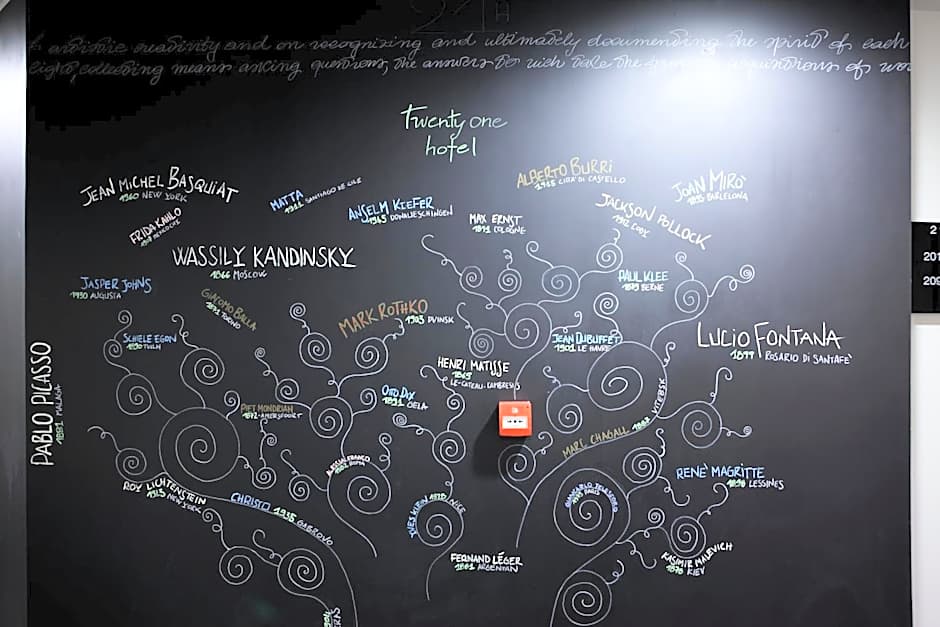 21H
artistic creativity and on recognizing and ultimately documenting the spirit of each
collecting means asking questions, the answers to wich take the
Twenty one
hotel
JEAN MICHEL BASQUIAT
1960 NEW YORK
MATTA
1911 SANTIAGO DE CILE
ALBERTO BURRI
1915 CITTÀ DI CASTELLO
JOAN MIRÒ
1893 BARCELONA
FRIDA KAHLO
ANSELM KIEFER
1945 DONAUESCHINGEN
MAX ERNST
1891 COLOGNE
JACKSON POLLOCK
1912 CODY
WASSILY KANDINSKY
1866 MOSCOW
JASPER JOHNS
1930 AUGUSTA
GIACOMO BALLA
1871 TORINO
MARK ROTHKO
1903 DVINSK
PAUL KLEE
1879 BERNE
SCHIELE EGON
1890 TULLN
JEAN DUBUFFET
1901 LE HAVRE
LUCIO FONTANA
1899 ROSARIO DI SANTAFE'
PABLO PICASSO
1881 MALAGA
HENRI MATISSE
1869
LE-CATEAU-CAMBRESIS
OTTO DIX
1891 GELA
PIET MONDRIAN
1872 AMERSFOORT
MARC CHAGALL 1887 VITEBSK
1902 ROMA
RENÈ MAGRITTE
1898 LESSINES
ROY LICHTENSTEIN
1923 NEW YORK
CHRISTO 1935 GABROVO
YVES KLEIN 1928 NICE
FERNAND LÉGER
1881 ARGENTAN
KASIMIR MALEVICH
1878 KIEV